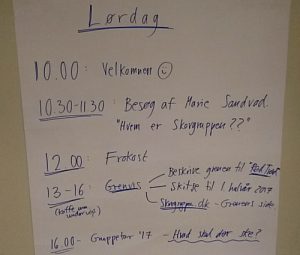 Lørdag
10.00: Velkommen
10.30-11.30: Besøg af Marie Sandvad
"Hvem er Skovgruppen??"
12.00: Frokost
13-16: Grenvis
(kaffe undervejs)
Beskrive grenen til "Red Træet"
Skitse til 1 halvår 2017
Skovgruppe.dk - Grenens side
16.00 - Gruppetur '17 - Hvad skal der ske?